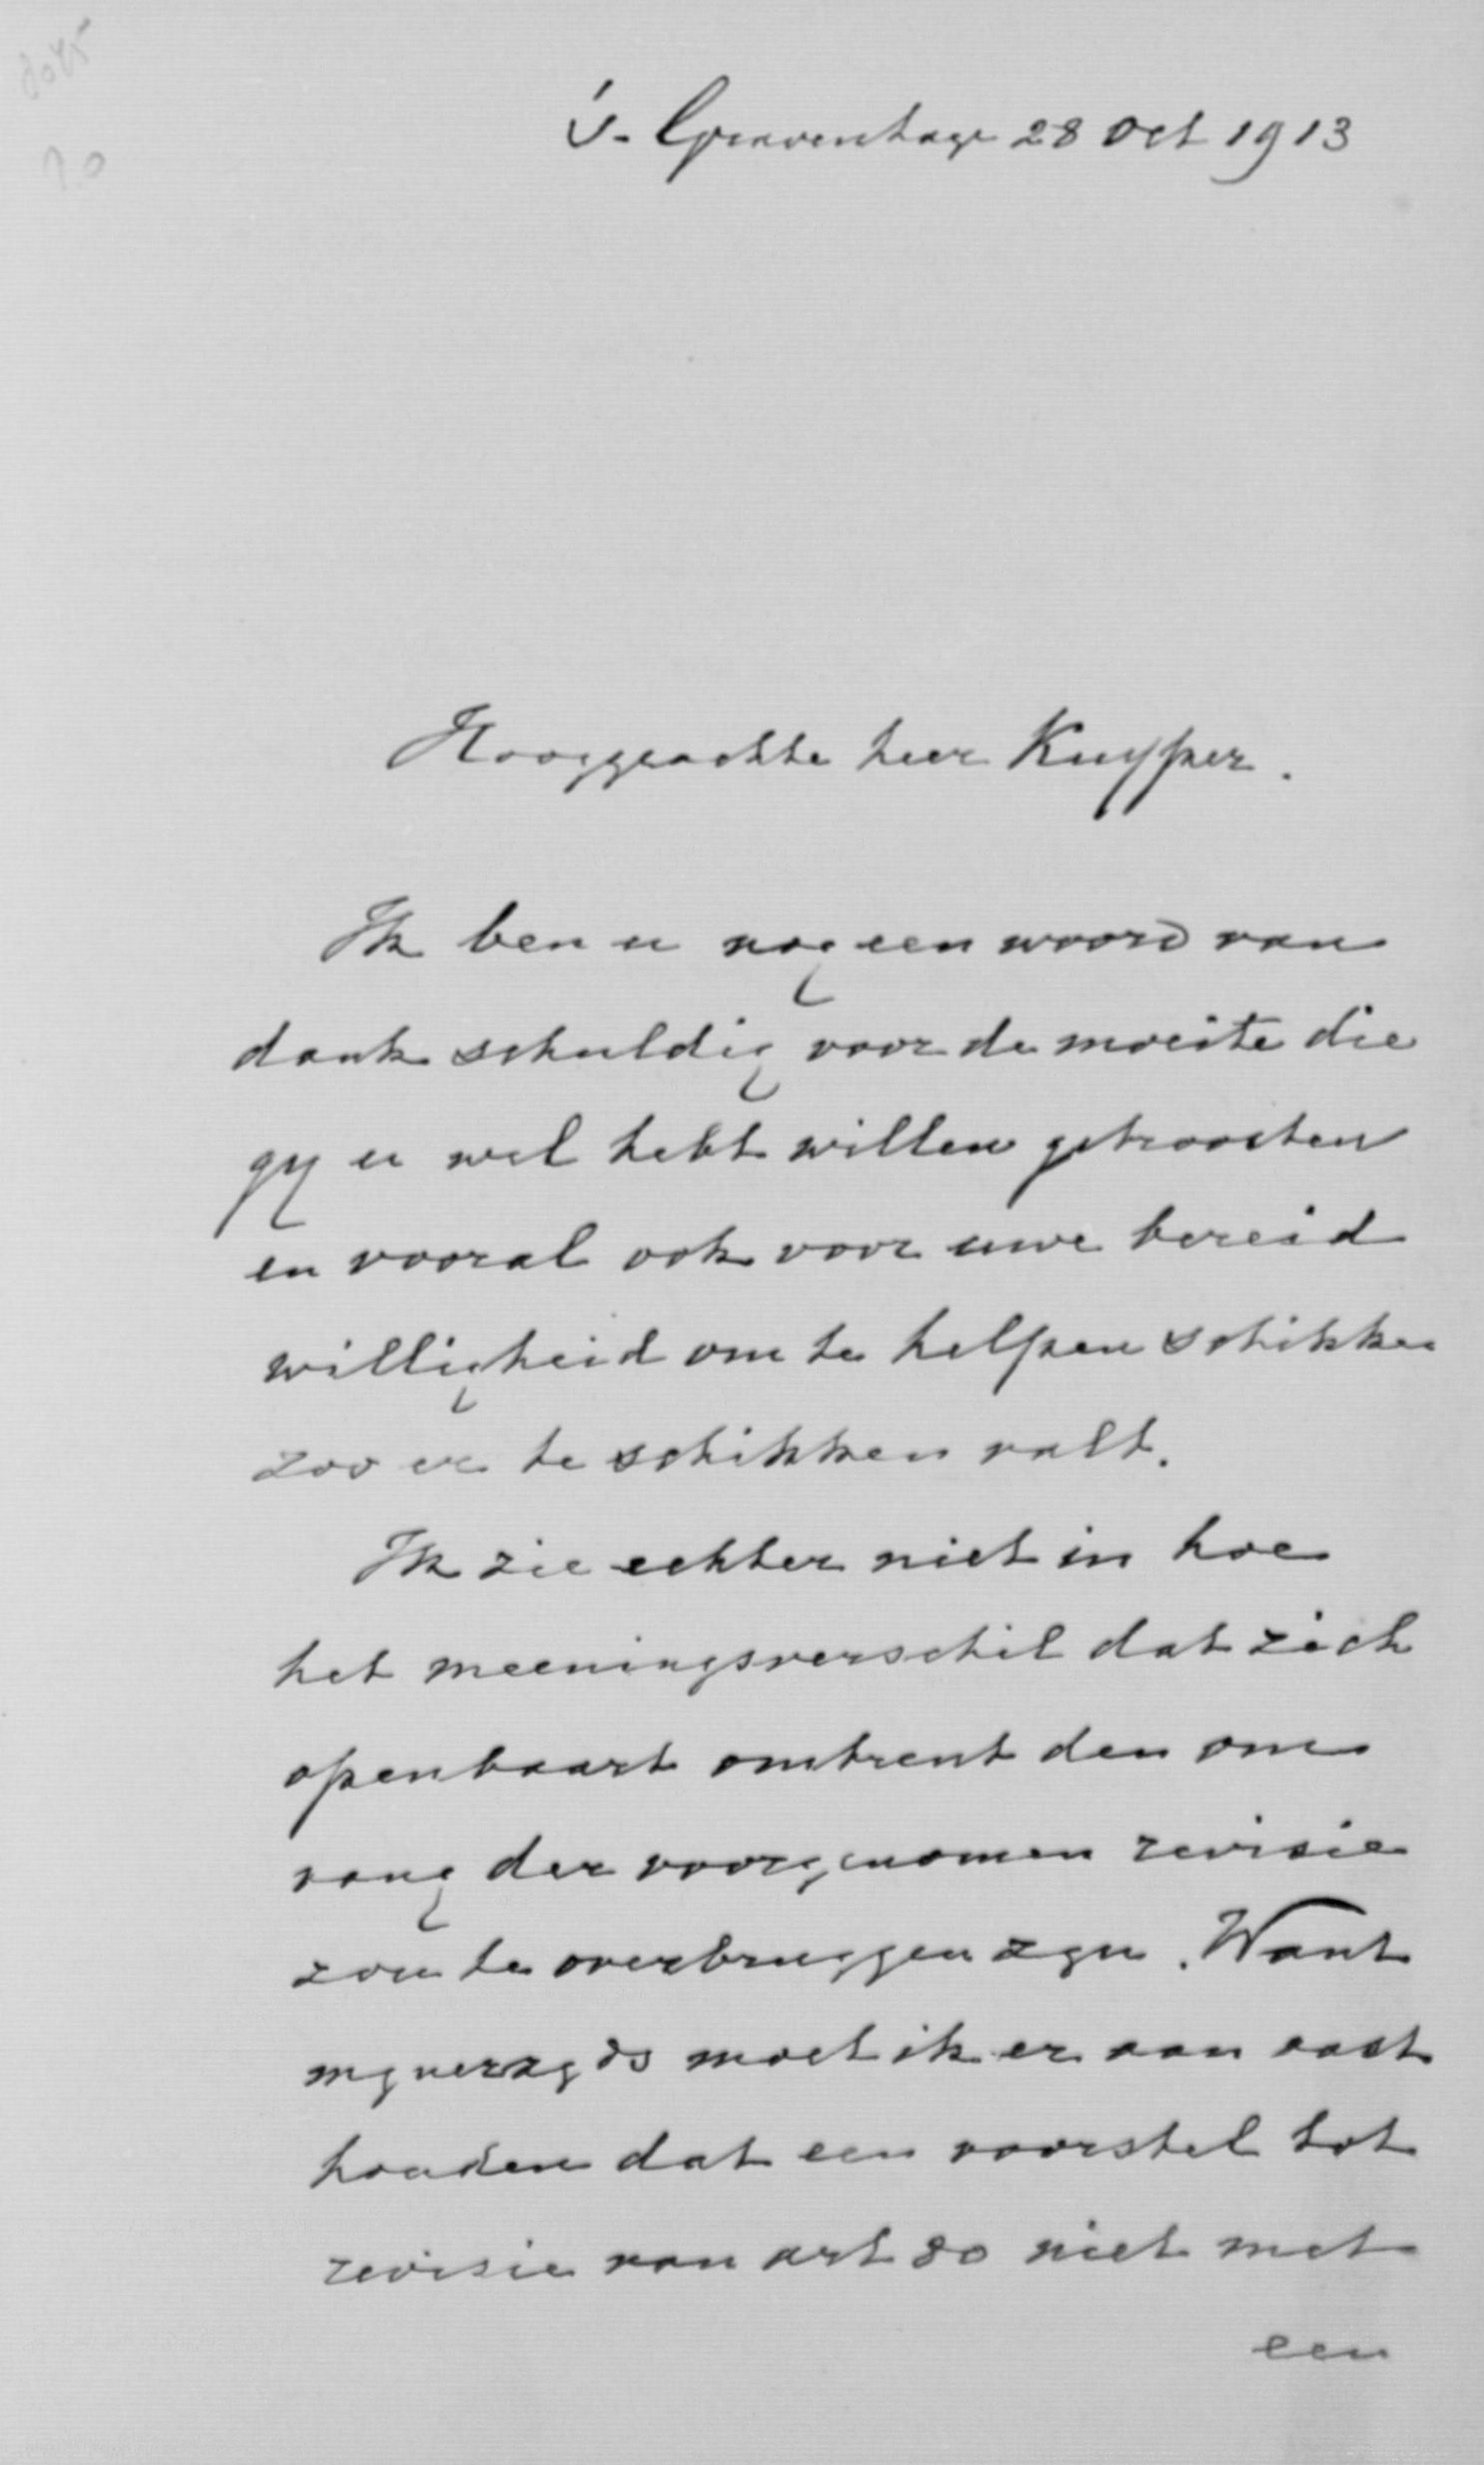 's-Gravenhage 28 Oct 1913
Hooggeachte heer Kuyper.
Ik ben u nog een woord van
dank schuldig voor de moeite die
gij u wel hebt willen getroosten
en vooral ook voor uwe bereid
willigheid om te helpen schikken
zoo er te schikken valt.
Ik zie echter niet in hoe
het meeningsverschil dat zich
openbaart omtrent den om
vang der voorgenomen revisie
zou te overbruggen zijn. Want
mijnerzijds moet ik er aan vast
houden dat een voorstel tot
revisie van art 80 niet met
een